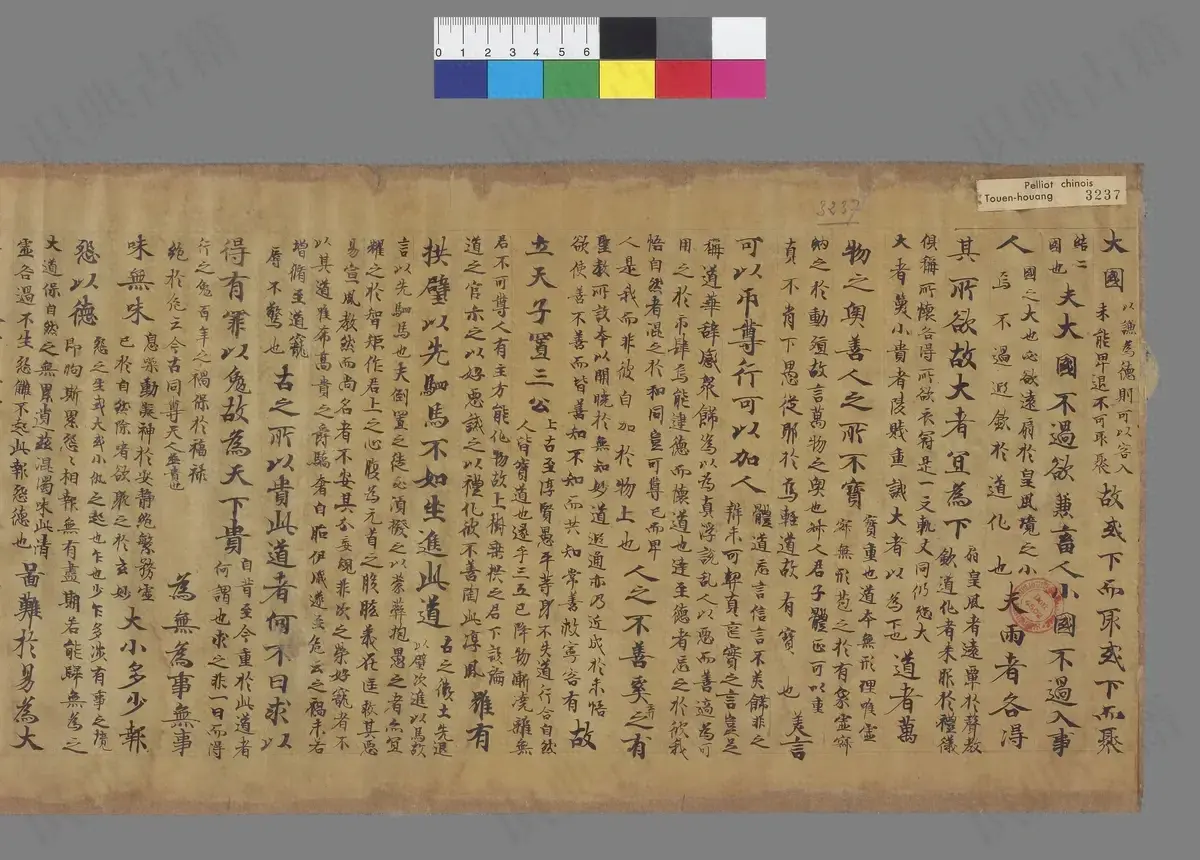 Pelliot chinois
Touen-houang 3237
3237
0 1 2 3 4 5 6
大國以謙為德則可以容入未能卑退不可取聚故或下而取或下而聚
結二國也夫大國不過欲兼畜人小國不過入事
人國之大也必欲遠扇於皇風境之小焉不過遊欽於道化也夫兩者各得
其所欲故大者宜為下扇皇風者遠單於聲教欽道化者來服於禮儀
俱稱所懷各得所欲衣冠是一文軌又同仍恐大
大者萬小貴者陵賤重誡大者以為下也道者萬
物之奧善人之所不寶寶重也道本無形理唯虛寂無形苞之於有象虛寂
納之於動須故言萬物之奧也善人君子體正可以重
真不肖下愚從耶於輕道故有寶也美言
可以市尊行可以加人體道忘言信言不美飾非之辯未可契真忘實之言豈足
稱道華辭感眾飾為以為真浮說乱人以愚而善適為可
用之於市肆焉能達德而積道也達至德者忘之於欣我
悟自然者混之於和同豈可尊己而卑
人是我而非彼自加於物上也人之不善奚之有
聖教所設本以開曉於無知妙道遐通亦乃近成於未悟
欲使善不善而皆善知不知而共知常善救寧容有故
立天子置三公上古至淳賢愚平等身不失道行合自然人皆寶道也逮乎三五已降物漸澆離無
君不可尊人有主方能化物故上樹垂拱之君下設論
道之官亦之以好忠誠之以禮化彼不善陶此淳風雖有
拱璧以先駟馬不如坐進此道古之徵士先退以璧次進以馬故
言以先駟馬也夫倒置之徒必須撥之以榮葬抱愚之者亦宜
耀之於智炬作君上之心腹為元首之股肱義在匡救其惡
易宣風教然而尚名者不安其分妄覬非次之榮好寵者不
以其道雅布高貴之爵驕奢自貽伊慼遂至危亡之禍未右
增脩至道寵
辱不驚也古之所以貴此道者何不日求以
得有罪以勉故為天下貴自昔至今重於此道者何謂也求之非一日而得
行之免百年之禍保於福祿
絕於危亡今古同尊天人無貴也為無為事無事
味無味息柴動凝神於安靜絕繁務虛己於自然除滓欲聚之於玄妙大小多少報
怨以德怨之生或大或小仇之起也乍也少乍多涉有事之境即朐斯累怨之相報無有盡期若能歸無為之
大道保自然之無累遺茲混濁味此清
虛各過不生怨讎不起此報怨德也啚難於易為大